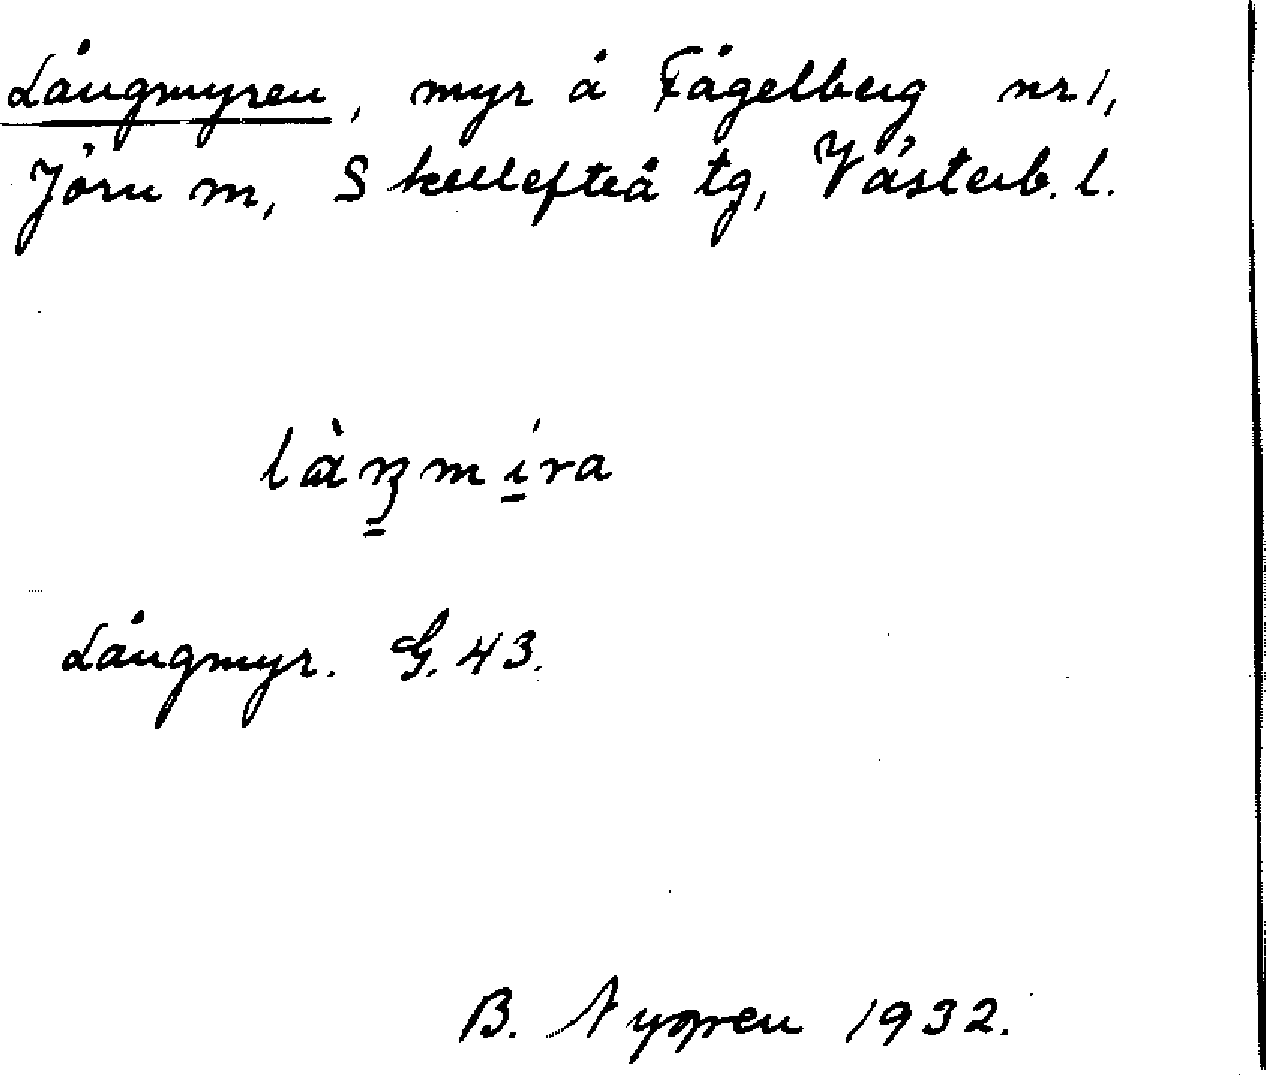 Långmyren, myr å Fågelberg nr 1,
Jörn m, Skellefteå tg, Västerb. l.
Långmyr. G. 43.
B. Nygren 1932.